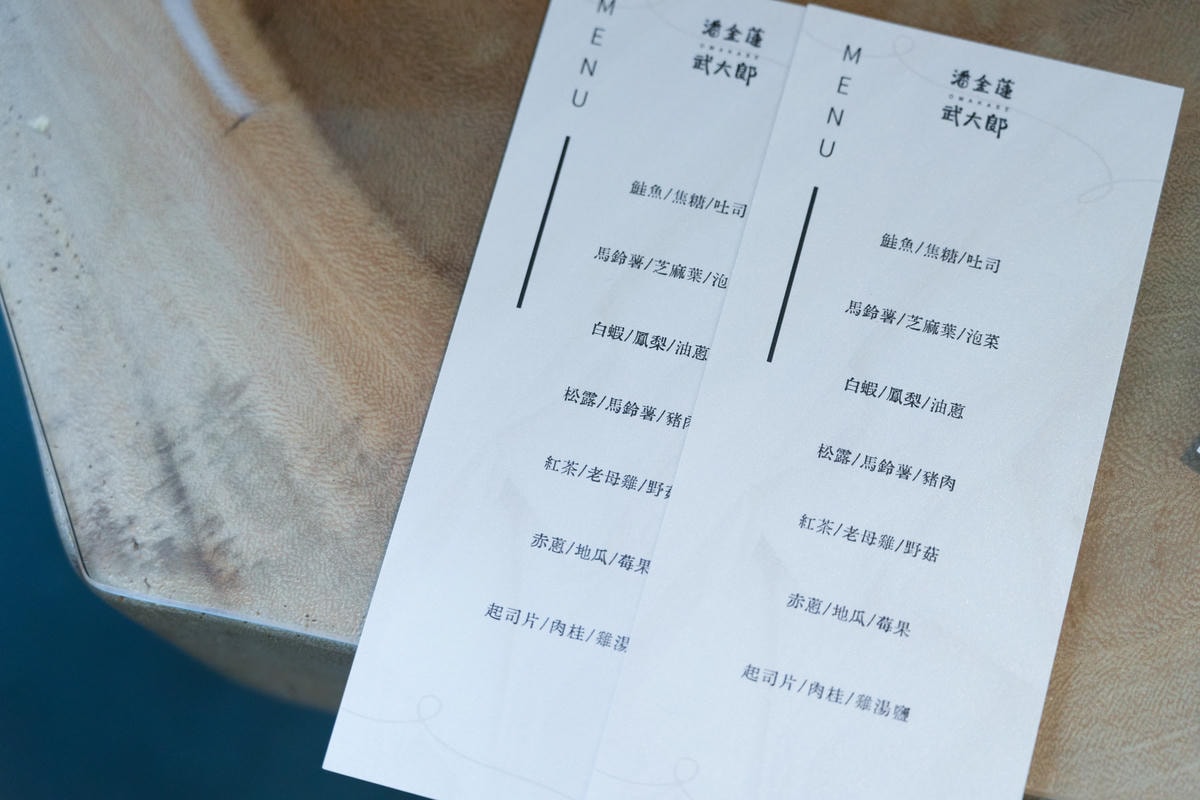 MENU
潘金蓮
OMAKASE
武大郎
鮭魚/焦糖/吐司
馬鈴薯/芝麻葉/泡
白蝦/鳳梨/油蔥
松露/馬鈴薯/豬肉
紅茶/老母雞/野菇
赤蔥/地瓜/莓果
起司片/肉桂/雞湯
MENU
潘金蓮
OMAKASE
武大郎
鮭魚/焦糖/吐司
馬鈴薯/芝麻葉/泡菜
白蝦/鳳梨/油蔥
松露/馬鈴薯/豬肉
紅茶/老母雞/野菇
赤蔥/地瓜/莓果
起司片/肉桂/雞湯鹽